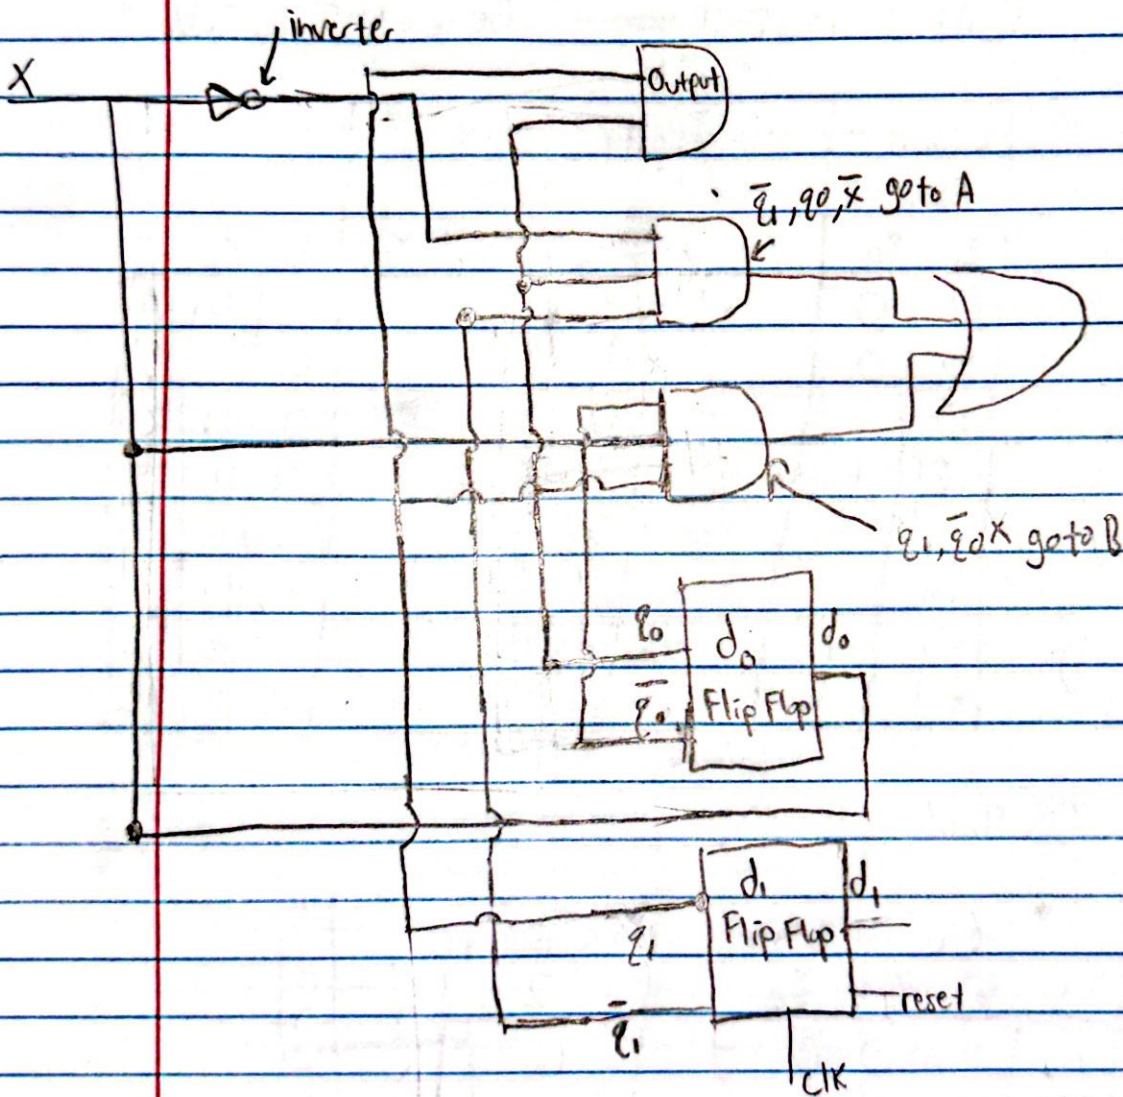 inverter
X
Output
q̅₁, q0, x̅ go to A
q₁, q̅0 x go to B
q₀
d₀
d₀
q̅₀
Flip Flop
d₁
d₁
Flip Flop
q₁
reset
q̅₁
clk